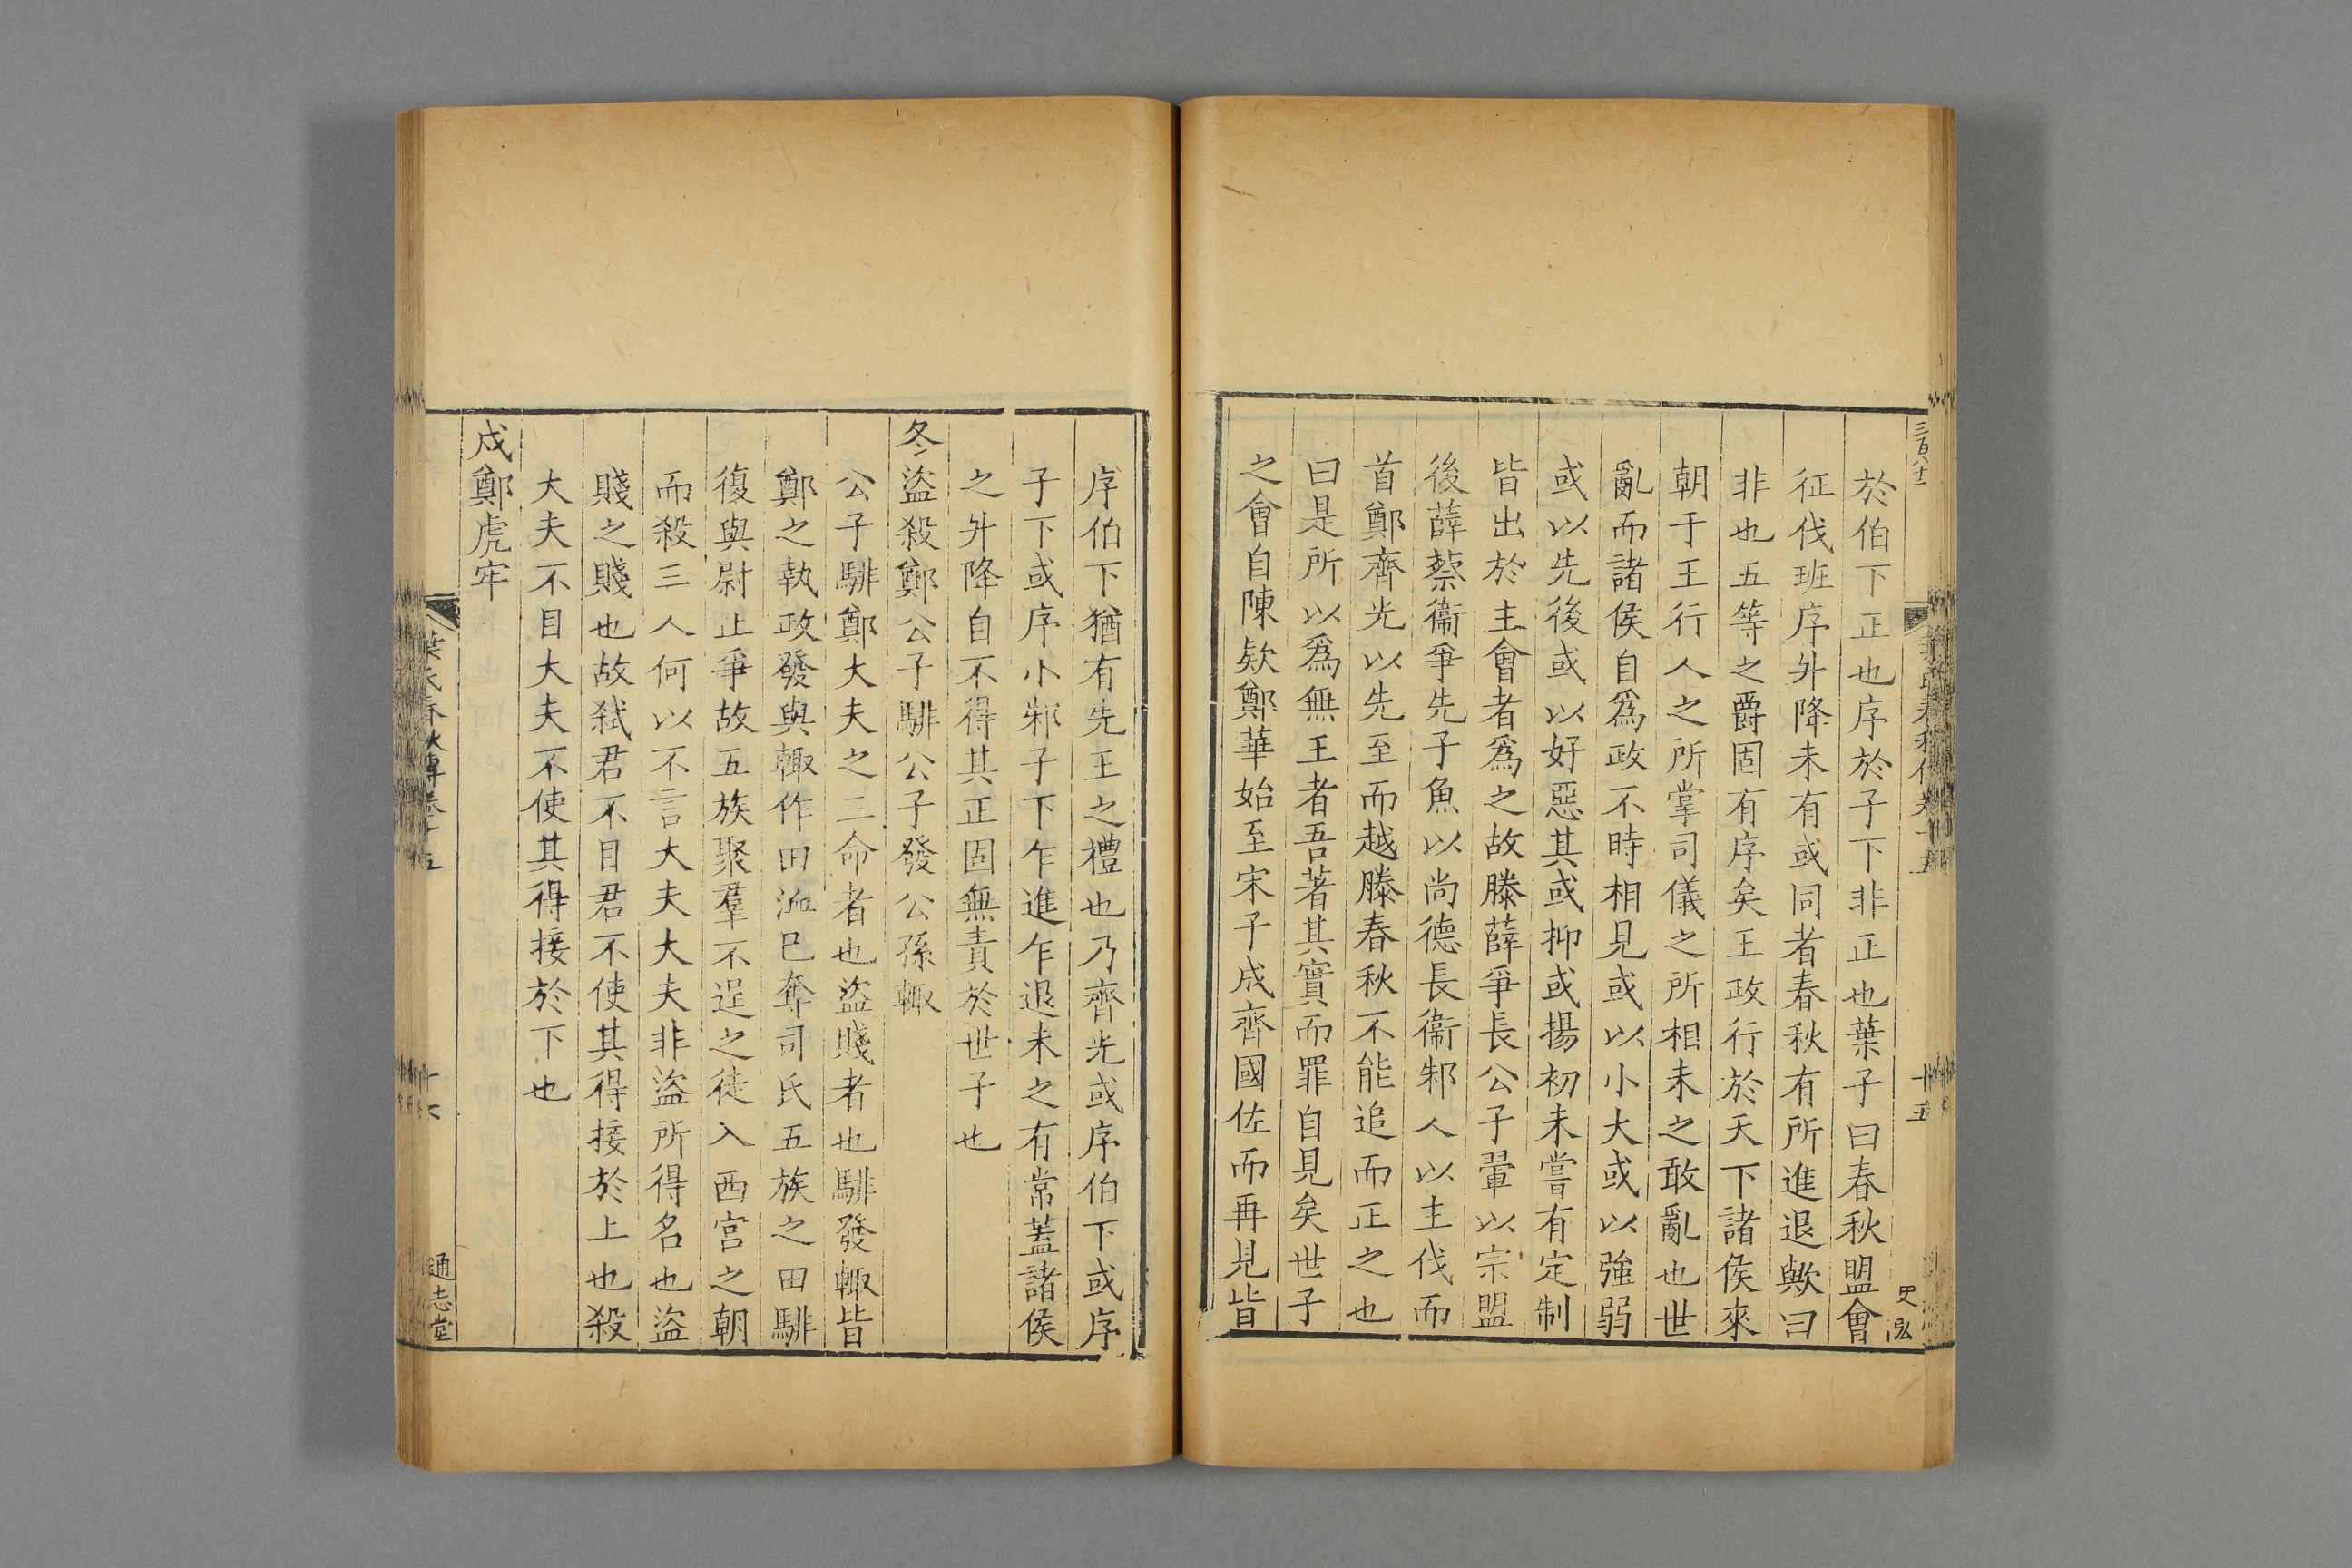 三百八十二
史弘
十五
於伯下正也序於子下非正也葉子曰春秋盟會
征伐班序升降未有或同者春秋有所進退歟曰
非也五等之爵固有序矣王政行於天下諸侯來
朝于王行人之所掌司儀之所相未之敢亂也世
亂而諸侯自爲政不時相見或以小大或以強弱
或以先後或以好惡其或抑或揚初未嘗有定制
皆出於主會者爲之故滕薛爭長公子翬以宗盟
後薛蔡衞爭先子魚以尚德長衞邾人以主伐而
首鄭齊光以先至而越滕春秋不能追而正之也
曰是所以爲無王者吾著其實而罪自見矣世子
之會自陳欵鄭華始至宋子成齊國佐而再見皆
序伯下猶有先王之禮也乃齊光或序伯下或序
子下或序小邾子下乍進乍退未之有常蓋諸侯
之升降自不得其正固無責於世子也
冬盜殺鄭公子騑公子發公孫輙
公子騑鄭大夫之三命者也盜賤者也騑發輙皆
鄭之執政發與輙作田洫已奪司氏五族之田騑
復與尉止爭故五族聚羣不逞之徒入西宫之朝
而殺三人何以不言大夫大夫非盜所得名也盜
賤之賤也故弑君不目君不使其得接於上也殺
大夫不目大夫不使其得接於下也
戍鄭虎牢
葉氏春秋傳卷十五
十六
通志堂